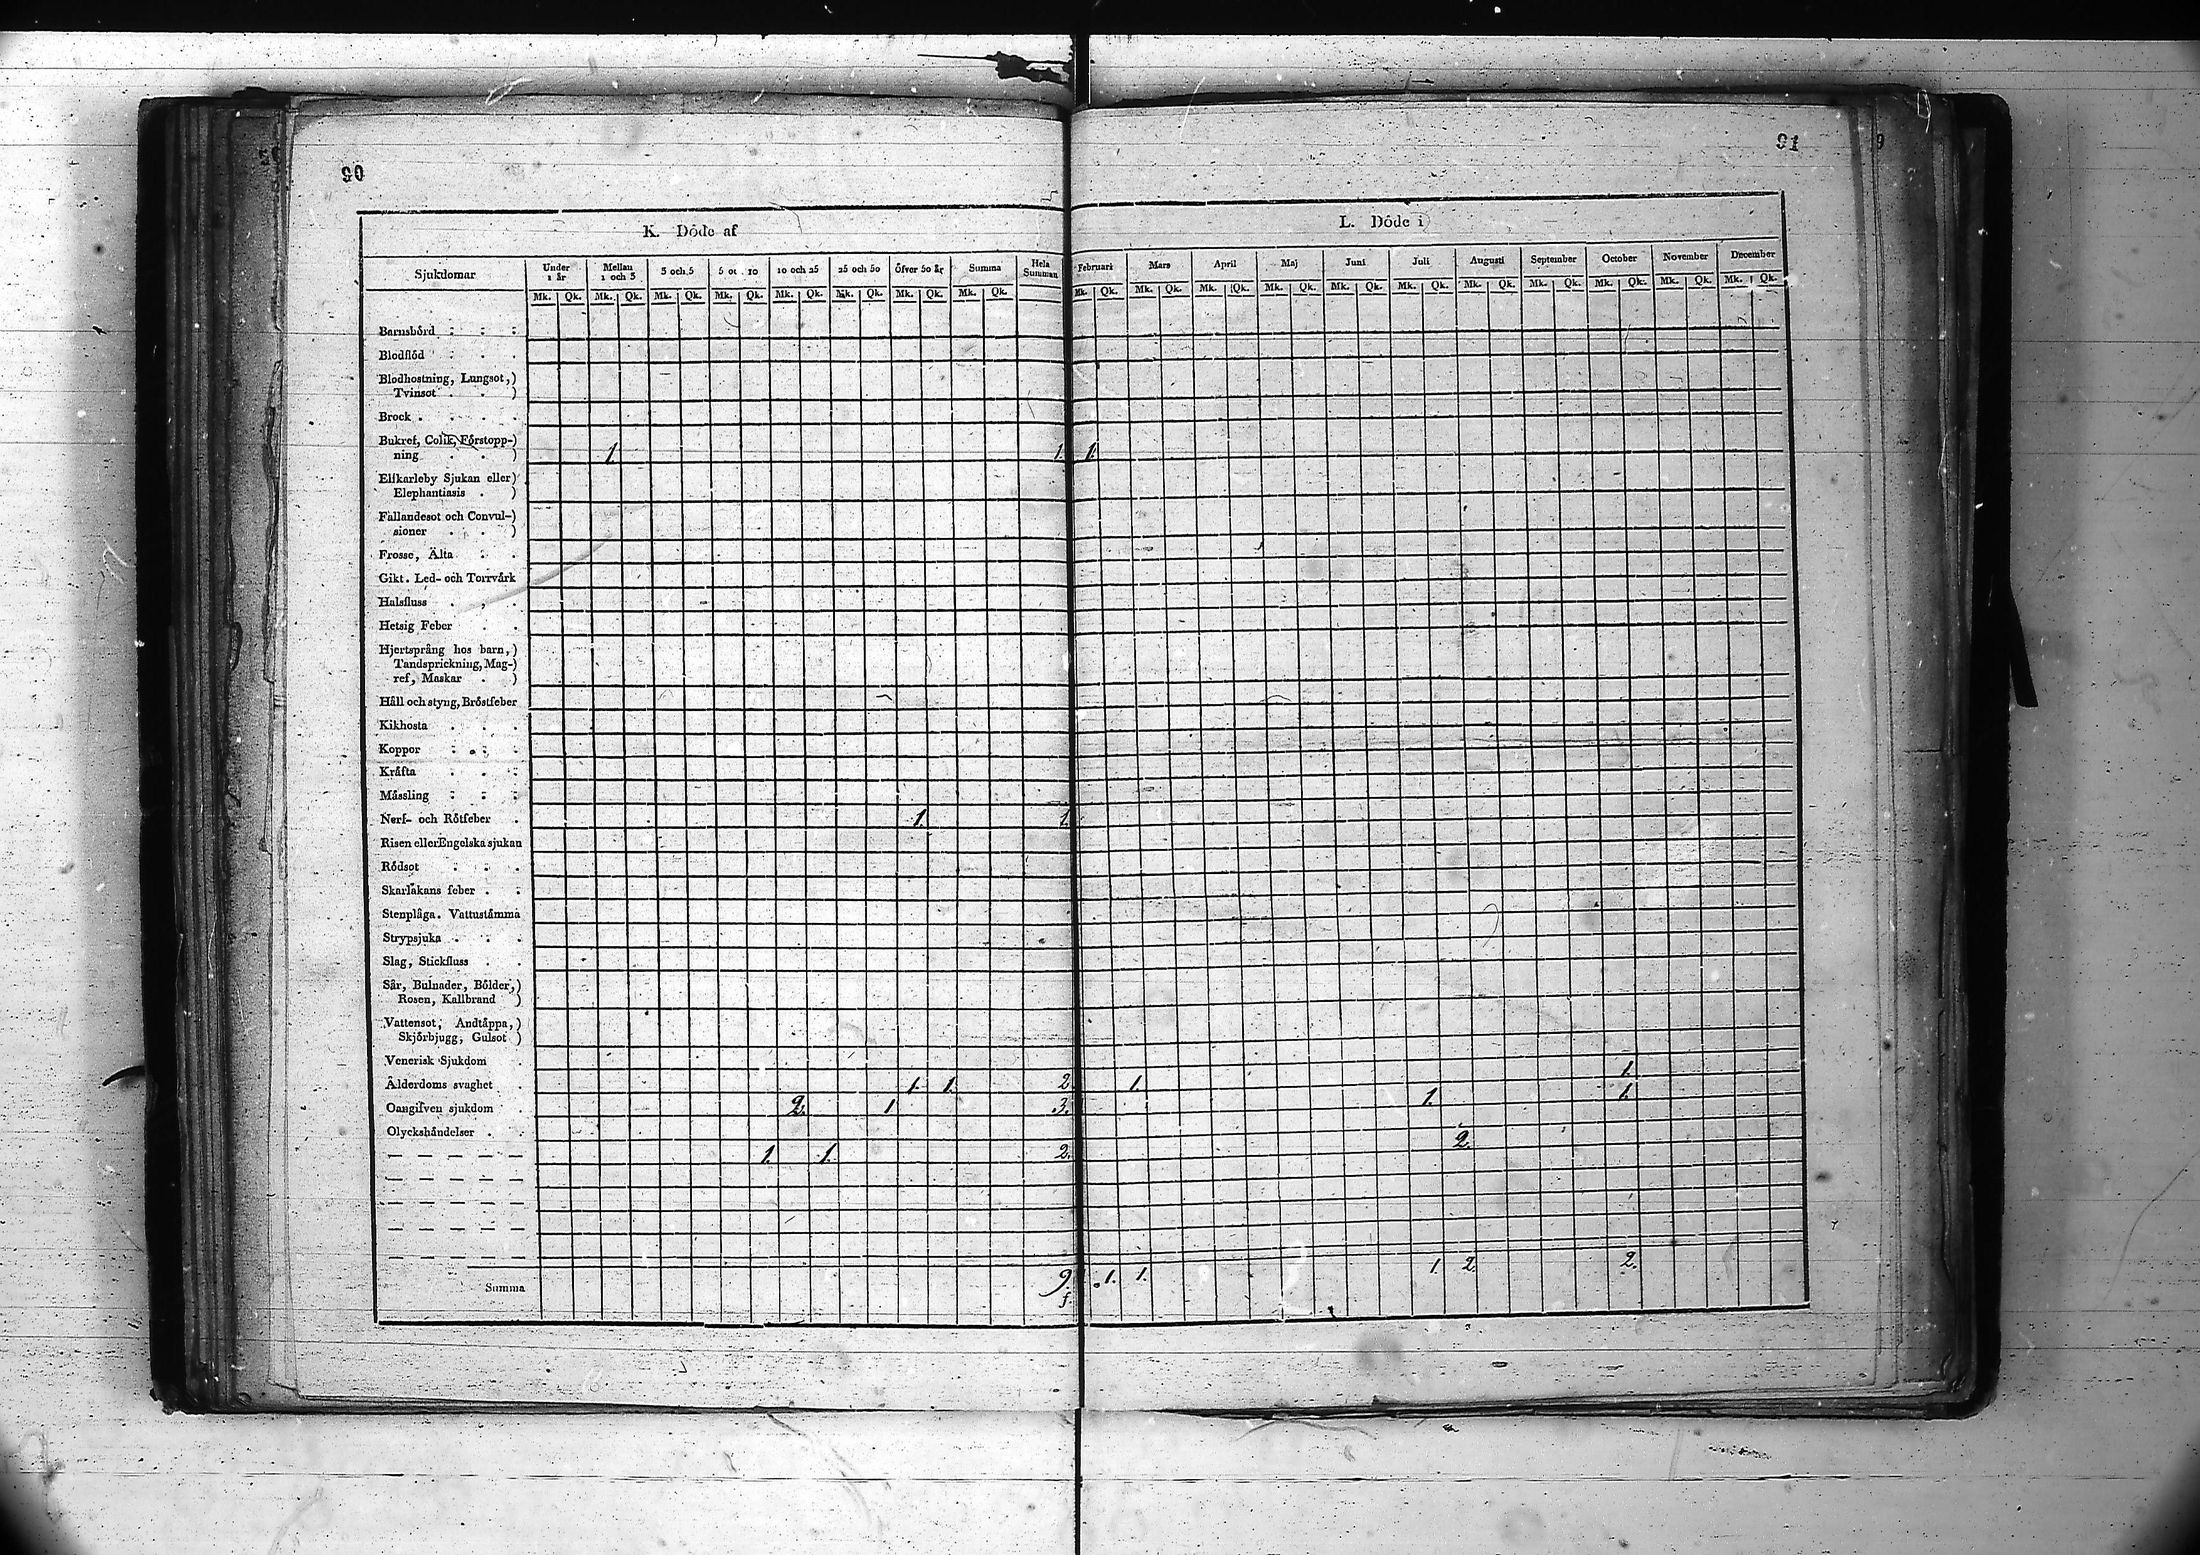 90
91
K. Döde af
L. Döde i
Sjukdomar Under 1 år Mellan 1 och 3 3 och 5 5 oc. 10 10 och 25 25 och 50 öfver 50 år Summa Hela Summan Februari Mars April Maj Juni Juli Augusti September October November December
Mk. Qk. Mk. Qk. Mk. Qk. Mk. Qk. Mk. Qk. Mk. Qk. Mk. Qk. Mk. Qk. Mk. Qk. Mk. Qk. Mk. Qk. Mk. Qk. Mk. Qk. Mk. Qk. Mk. Qk. Mk. Qk. Mk. Qk. Mk. Qk. Mk. Qk.
Barnsbörd
Blodflöd
Blodhostning, Lungsot,)
Tvinsot )
Brock
Bukref, Colik, Förstopp-)
ning ) 1. 1. 1.
Elfkarleby Sjukan eller)
Elephantiasis )
Fallandesot och Convul-)
sioner )
Frosse, Älta
Gikt. Led- och Torrvärk
Halsfluss
Hetsig Feber
Hjertsprång hos barn,)
Tandsprickning, Mag-)
ref, Maskar )
Håll och styng, Bröstfeber
Kikhosta
Koppor
Kräfta
Mässling
Nerf- och Rötfeber 1. 1.
Risen eller Engelska sjukan
Rödsot
Skarlakans feber
Stenplåga. Vattustämma
Strypsjuka
Slag, Stickfluss
Sår, Bulnader, Bölder,)
Rosen, Kallbrand )
Vattensot, Andtäppa,)
Skjörbjugg, Gulsot )
Venerisk Sjukdom 1.
Ålderdoms svaghet 1. 1. 2. 1. 1.
Oangifven sjukdom 2. 1 3. 1.
Olyckshändelser 2.
1. 1. 2.
Summa 9 1. 1. 1. 2. 2.